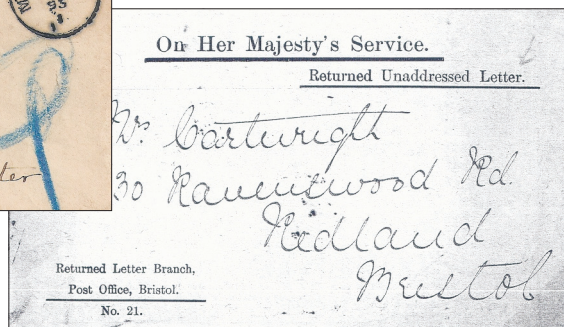 On Her Majesty's Service.
Returned Unaddressed Letter.
Cartwright
30 Ravenswood Rd.
Redland
Bristol
Returned Letter Branch,
Post Office, Bristol.
No. 21.